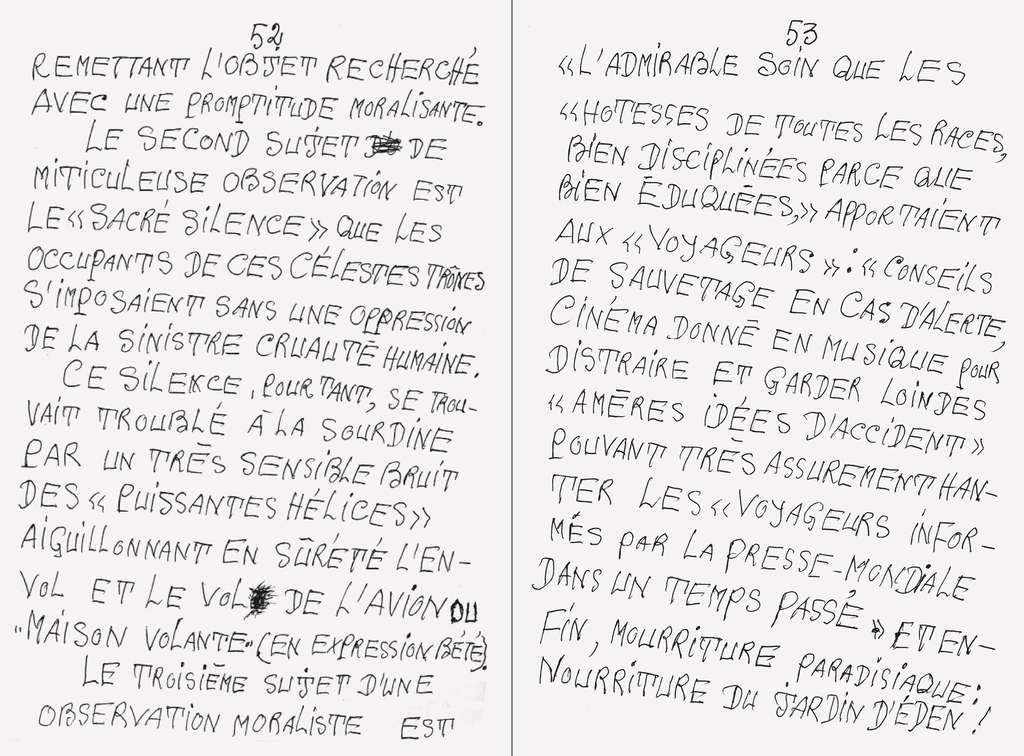 52
REMETTANT L'OBJET RECHERCHÉ
AVEC UNE PROMPTITUDE MORALISANTE.
LE SECOND SUJET DE
MITICULEUSE OBSERVATION EST
LE «SACRÉ SILENCE» QUE LES
OCCUPANTS DE CES CÉLESTES TRÔNES
S'IMPOSAIENT SANS UNE OPPRESSION
DE LA SINISTRE CRUAUTÉ HUMAINE.
CE SILENCE, POURTANT, SE TROU-
VAIT TROUBLÉ À LA SOURDINE
PAR UN TRÈS SENSIBLE BRUIT
DES «PUISSANTES HÉLICES»
AIGUILLONNANT EN SÛRÉTÉ L'EN-
VOL ET LE VOL DE L'AVION OU
"MAISON VOLANTE" (EN EXPRESSION BÉTÉ).
LE TROISIÈME SUJET D'UNE
OBSERVATION MORALISTE EST
53
«L'ADMIRABLE SOIN QUE LES
«HOTESSES DE TOUTES LES RACES,
BIEN DISCIPLINÉES PARCE QUE
BIEN ÉDUQUÉES,» APPORTAIENT
AUX «VOYAGEURS» : «CONSEILS
DE SAUVETAGE EN CAS D'ALERTE,
CINÉMA DONNÉ EN MUSIQUE POUR
DISTRAIRE ET GARDER LOIN DES
«AMÈRES IDÉES D'ACCIDENT»
POUVANT TRÈS ASSUREMENT HAN-
TER LES «VOYAGEURS INFOR-
MÉS PAR LA PRESSE-MONDIALE
DANS UN TEMPS PASSÉ» ET EN-
FIN, MOURRITURE PARADISIAQUE:
NOURRITURE DU JARDIN D'ÉDEN!